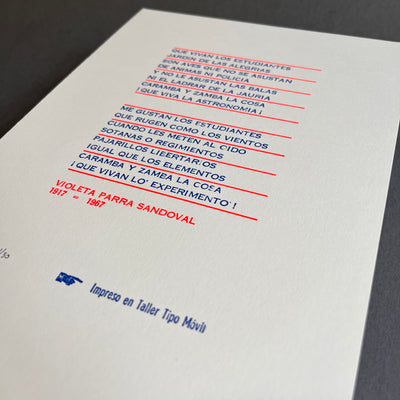 QUE VIVAN LOS ESTUDIANTES
JARDIN DE LAS ALEGRIAS
SON AVES QUE NO SE ASUSTAN
DE ANIMAS NI POLICIA
Y NO LE ASUSTAN LAS BALAS
NI EL LADRAR DE LA JAURIA
CARAMBA Y ZAMBA LA COSA
¡QUE VIVA LA ASTRONOMIA!
ME GUSTAN LOS ESTUDIANTES
QUE RUGEN COMO LOS VIENTOS
CUANDO LES METEN AL OIDO
SOTANAS O REGIMIENTOS
PAJARILLOS LIBERTARIOS
IGUAL QUE LOS ELEMENTOS
CARAMBA Y ZAMBA LA COSA
¡QUE VIVAN LO EXPERIMENTO!
VIOLETA PARRA SANDOVAL
1917 = 1967
Impreso en Taller Tipo Móvil